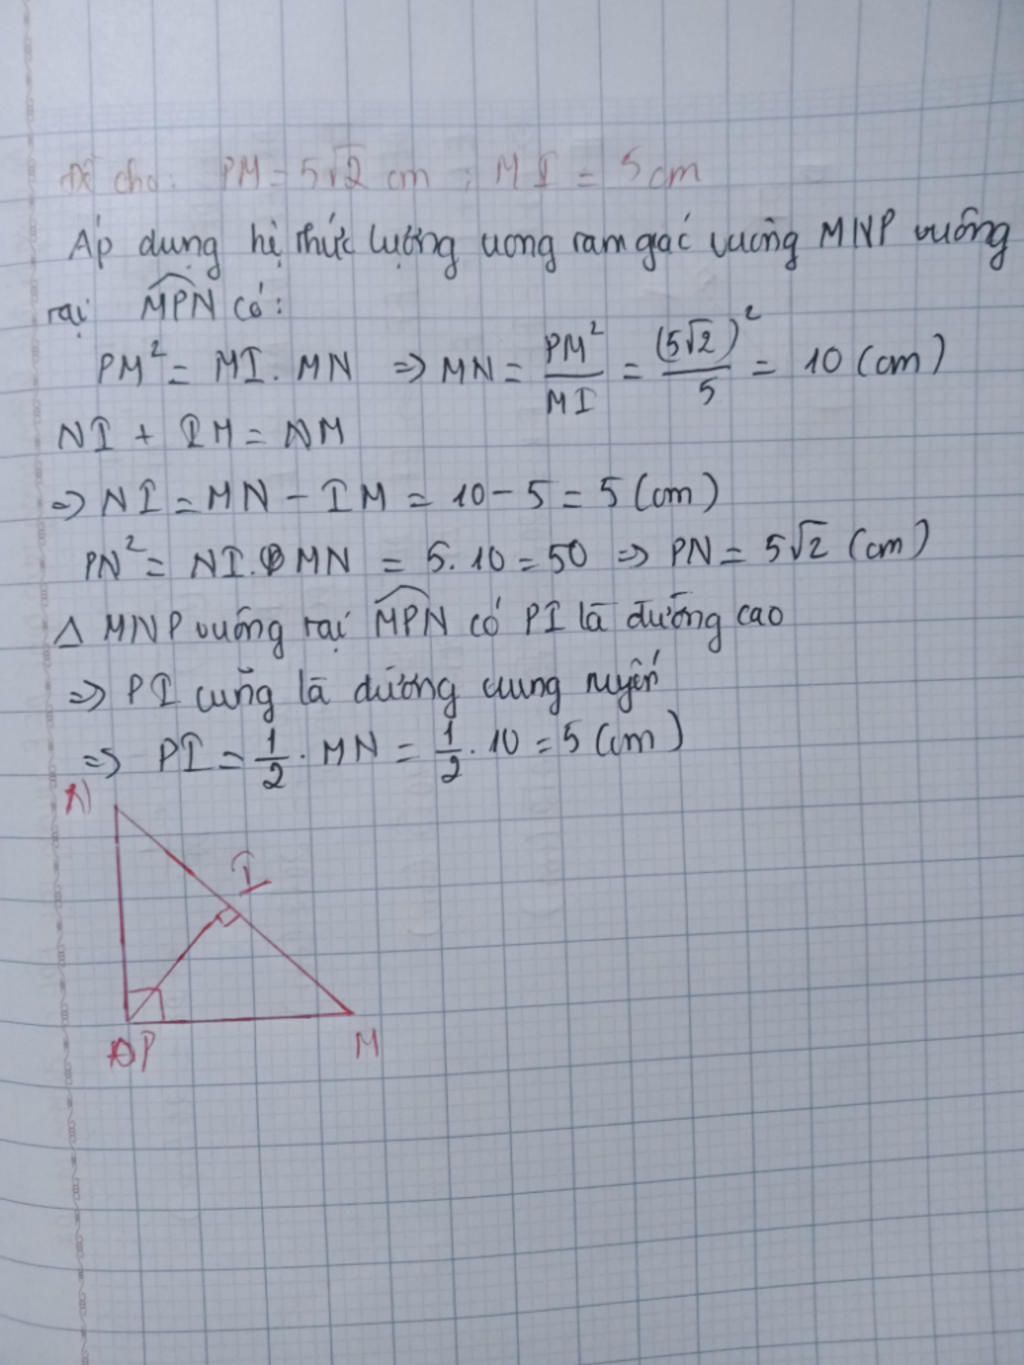 Đề cho: PM = 5√2 cm ; MI = 5 cm
Áp dụng hệ thức lượng trong tam giác vuông MNP vuông
tại MPN có:
PM² = MI. MN ⇒ MN = PM²/MI = (5√2)²/5 = 10 (cm)
NI + IM = NM
⇒ NI = MN − IM = 10 − 5 = 5 (cm)
PN² = NI. MN = 5. 10 = 50 ⇒ PN = 5√2 (cm)
Δ MNP vuông tại MPN có PI là đường cao
⇒ PI cũng là đường trung tuyến
⇒ PI = 1/2 . MN = 1/2 . 10 = 5 (cm)
N
I
P
M